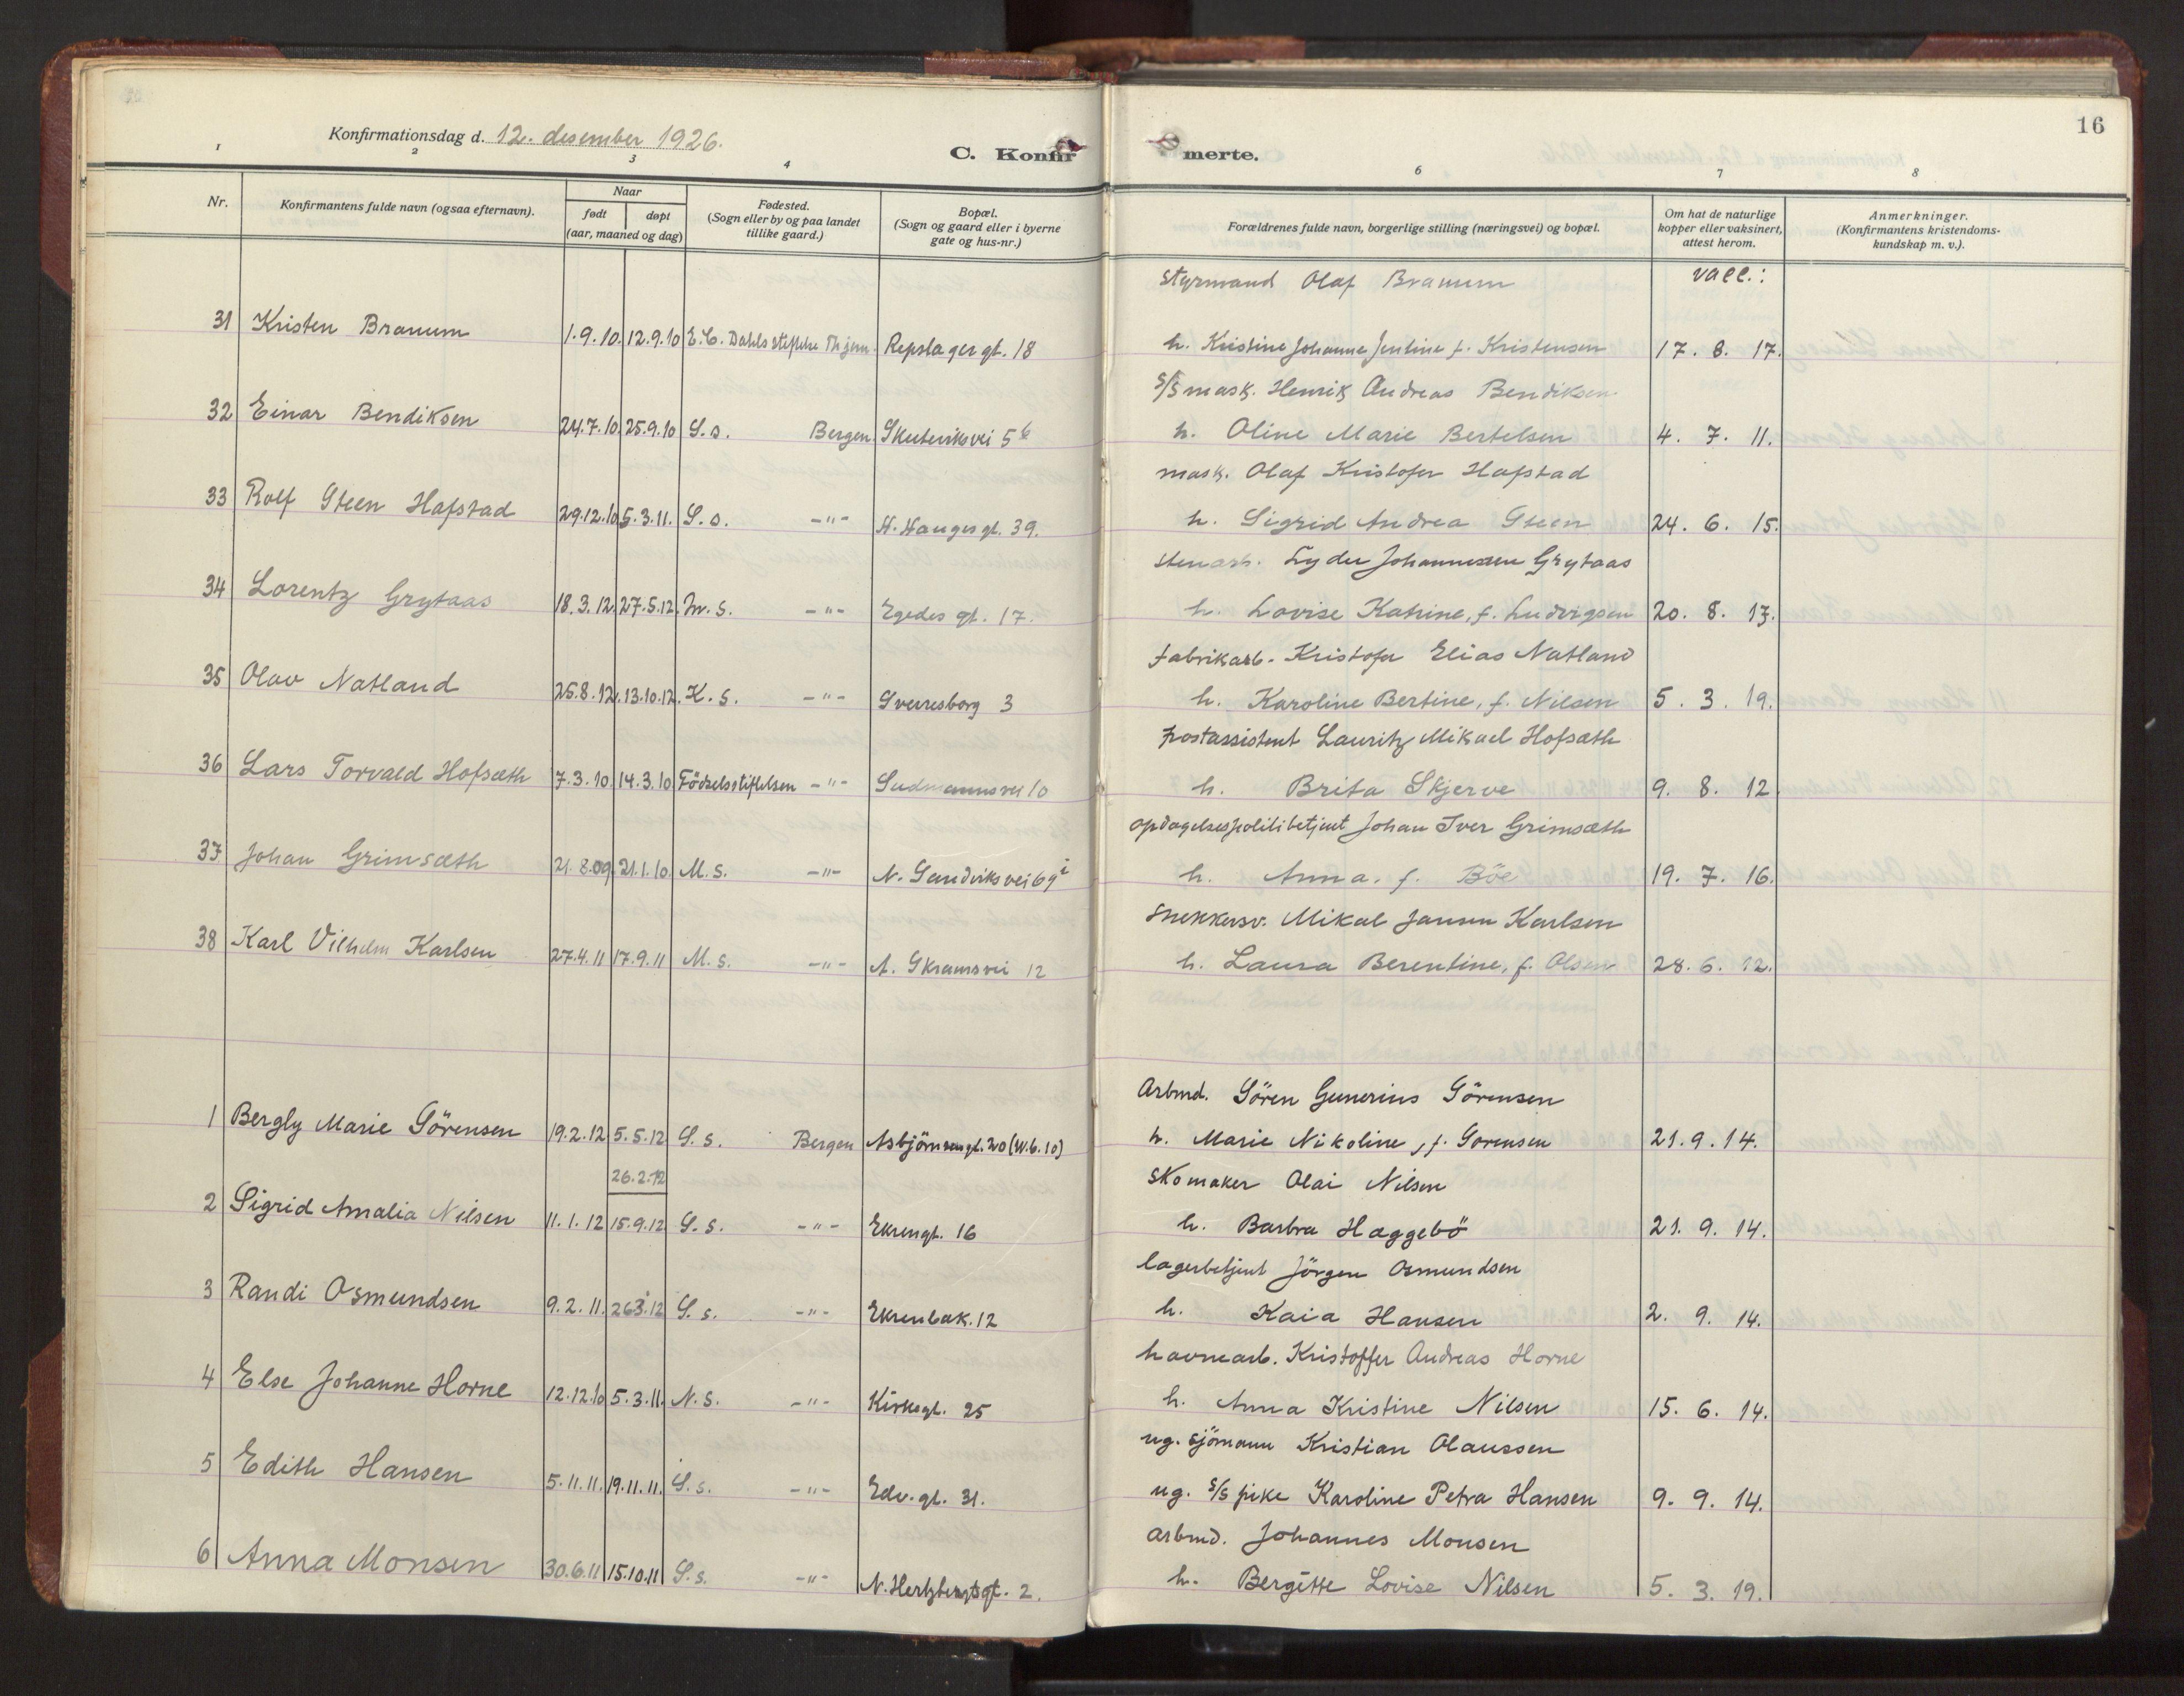 Konfirmationsdag d. 12. desember 1926.
C. Konfirmerte.
16
1 2 3 4 6 7 8
Nr.
Konfirmantens fulde navn (ogsaa efternavn).
Naar
født døpt
(aar, maaned og dag)
Fødested.
(Sogn eller by og paa landet
tillike gaard.)
Bopæl.
(Sogn og gaard eller i byerne
gate og hus-nr.)
Forældrenes fulde navn, borgerlige stilling (næringsvei) og bopæl.
Om hat de naturlige
kopper eller vaksinert,
attest herom.
Anmerkninger.
(Konfirmantens kristendoms-
kundskap m. v.).
styrmand Olaf Branum vacc.:
31 Kristen Branum 1.9.10. 12.9.10 E.C. Dahls stiftelse Thjem. Repslagergt. 18 h. Kristine Johanne Jentine f. Kristensen 17. 8. 17.
S/S mask. Henrik Andreas Bendiksen
32 Einar Bendiksen 24.7.10 25.9.10 S.s. Bergen Skuteviksvei 5 h. Oline Marie Bertelsen 4. 7. 11.
mask. Olaf Kristofer Hafstad
33 Rolf Steen Hafstad 29.12.10 5.3.11. S.s. -"- H. Haugesgt. 39. h. Sigrid Andrea Steen 24. 6. 15.
stenarb. Lyder Johannessen Grytaas
34 Lorentz Grytaas 18.3.12. 27.5.12. M.s. -"- Egedes gt. 17. h. Lovise Katrine, f. Ludvigsen 20. 8. 17.
fabrikarb. Kristofer Elias Natland
35 Olav Natland 25.8.12. 13.10.12. K.s. -"- Sverresborg 3 h. Karoline Bertine, f. Nilsen 5. 3. 19.
postassistent Lauritz Mikael Hofsæth
36 Lars Torvald Hofsæth 7.3.10. 14.3.10 Födselsstiftelsen -"- Sudmannsvei 10 h. Brita Skjerve 9. 8. 12
opdagelsespolitibetjent Johan Iver Grimsæth
37 Johan Grimsæth 21.8.09. 21.1.10. M.s. -"- N. Sandviksvei 69 h. Anna. f. Böe 19. 7. 16.
snekkersv. Mikal Jansen Karlsen
38 Karl Vilhelm Karlsen 27.4.11 17.9.11 M.s. -"- A. Skramsvei 12 h. Laura Berentine, f. Olsen 28. 6. 12.
Arbmd. Sören Gunerius Sörensen
1 Bergly Marie Sörensen 19.2.12 5.5.12 S.s. Bergen Asbjörnsensgt. 20 (W.b. 10) h. Marie Nikoline, f. Sorensen 21. 9. 14.
26.2.12 skomaker Olai Nilsen
2 Sigrid Amalia Nilsen 11.1.12 15.9.12 S.s. -"- Ekrengt. 16 h. Barbra Haggebö 21. 9. 14.
lagerbetjent Jörgen Osmundsen
3 Randi Osmundsen 9.2.11. 26.3.12 S.s. -"- Ekrenbak. 12 h. Kaia Hansen 2. 9. 14.
havnearb. Kristoffer Andreas Horne
4 Else Johanne Horne 12.12.10 5.3.11. N.s. -"- Kirkegt. 25 h. Anna Kristine Nilsen 15. 6. 14.
ug. sjömann Kristian Olaussen
5 Edith Hansen 5.11.11. 19.11.11. S.s. -"- Edv.gt. 31. ug. S/S pike Karoline Petra Hansen 9. 9. 14.
arbmd. Johannes Monsen
6 Anna Monsen 30.6.11 15.10.11 S.s. -"- N. Hertzbergsgt. 2. h. Bergitte Lovise Nilsen 5. 3. 19.